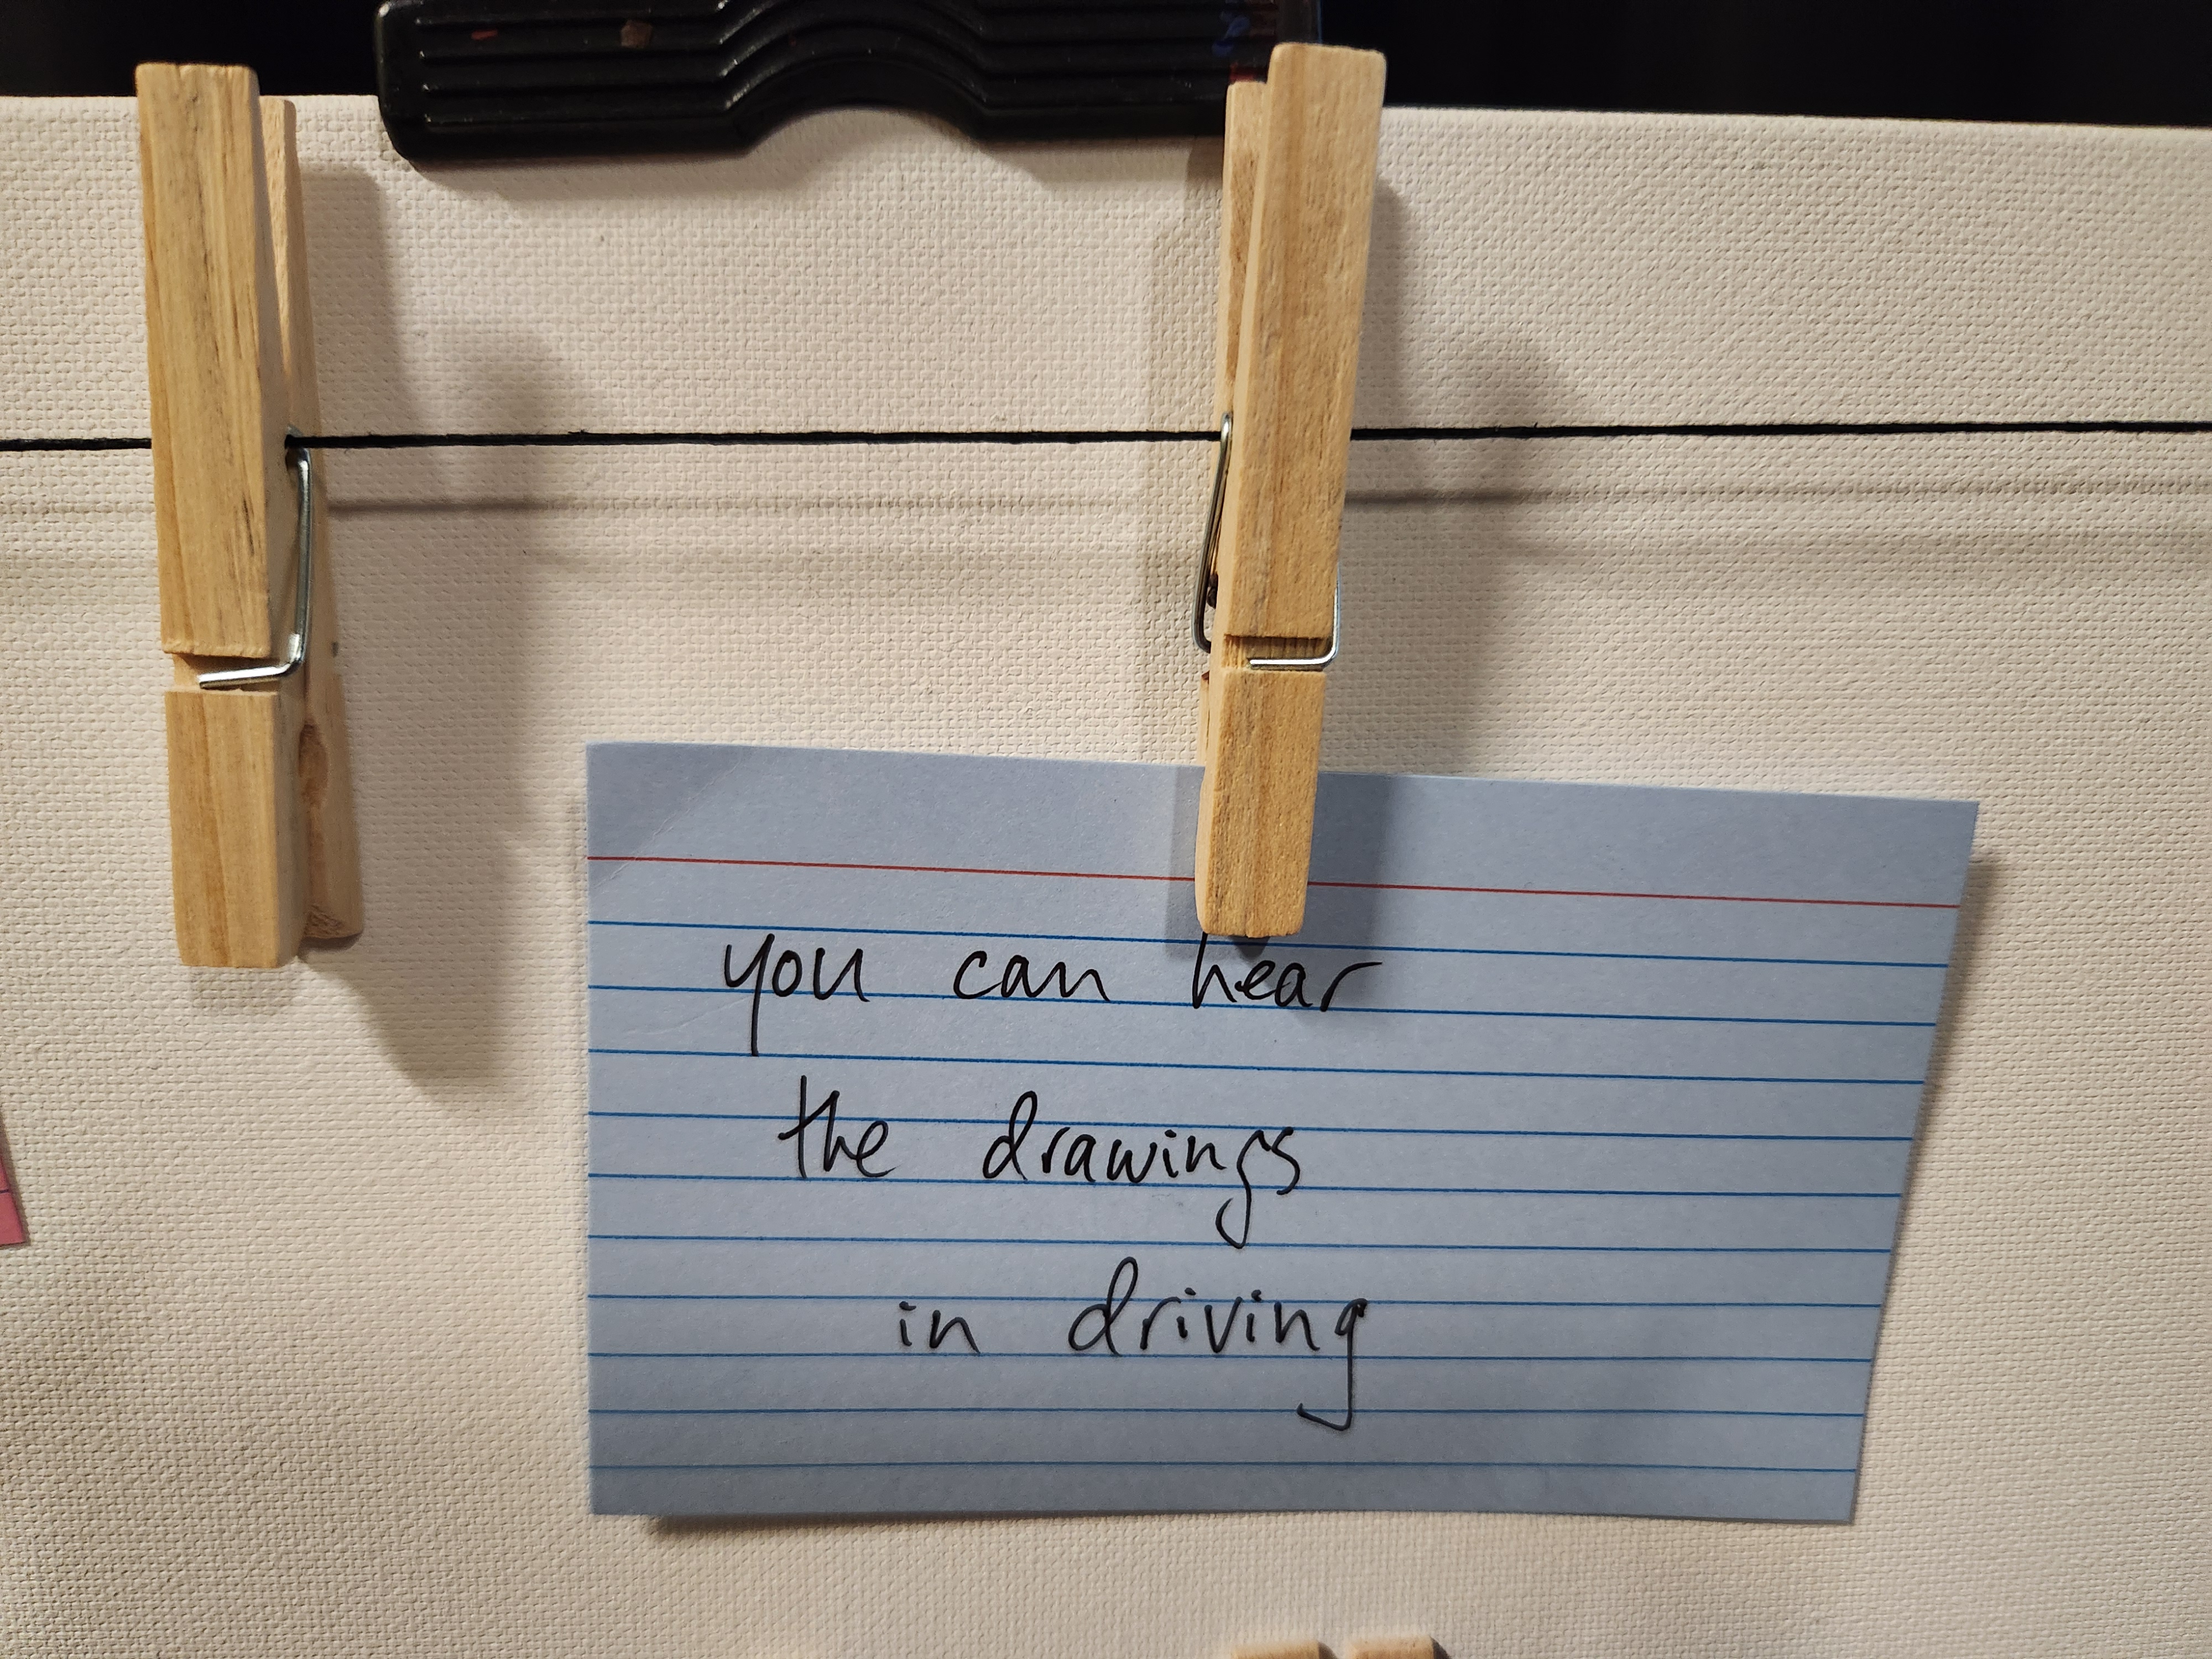 you can hear
the drawings
in driving